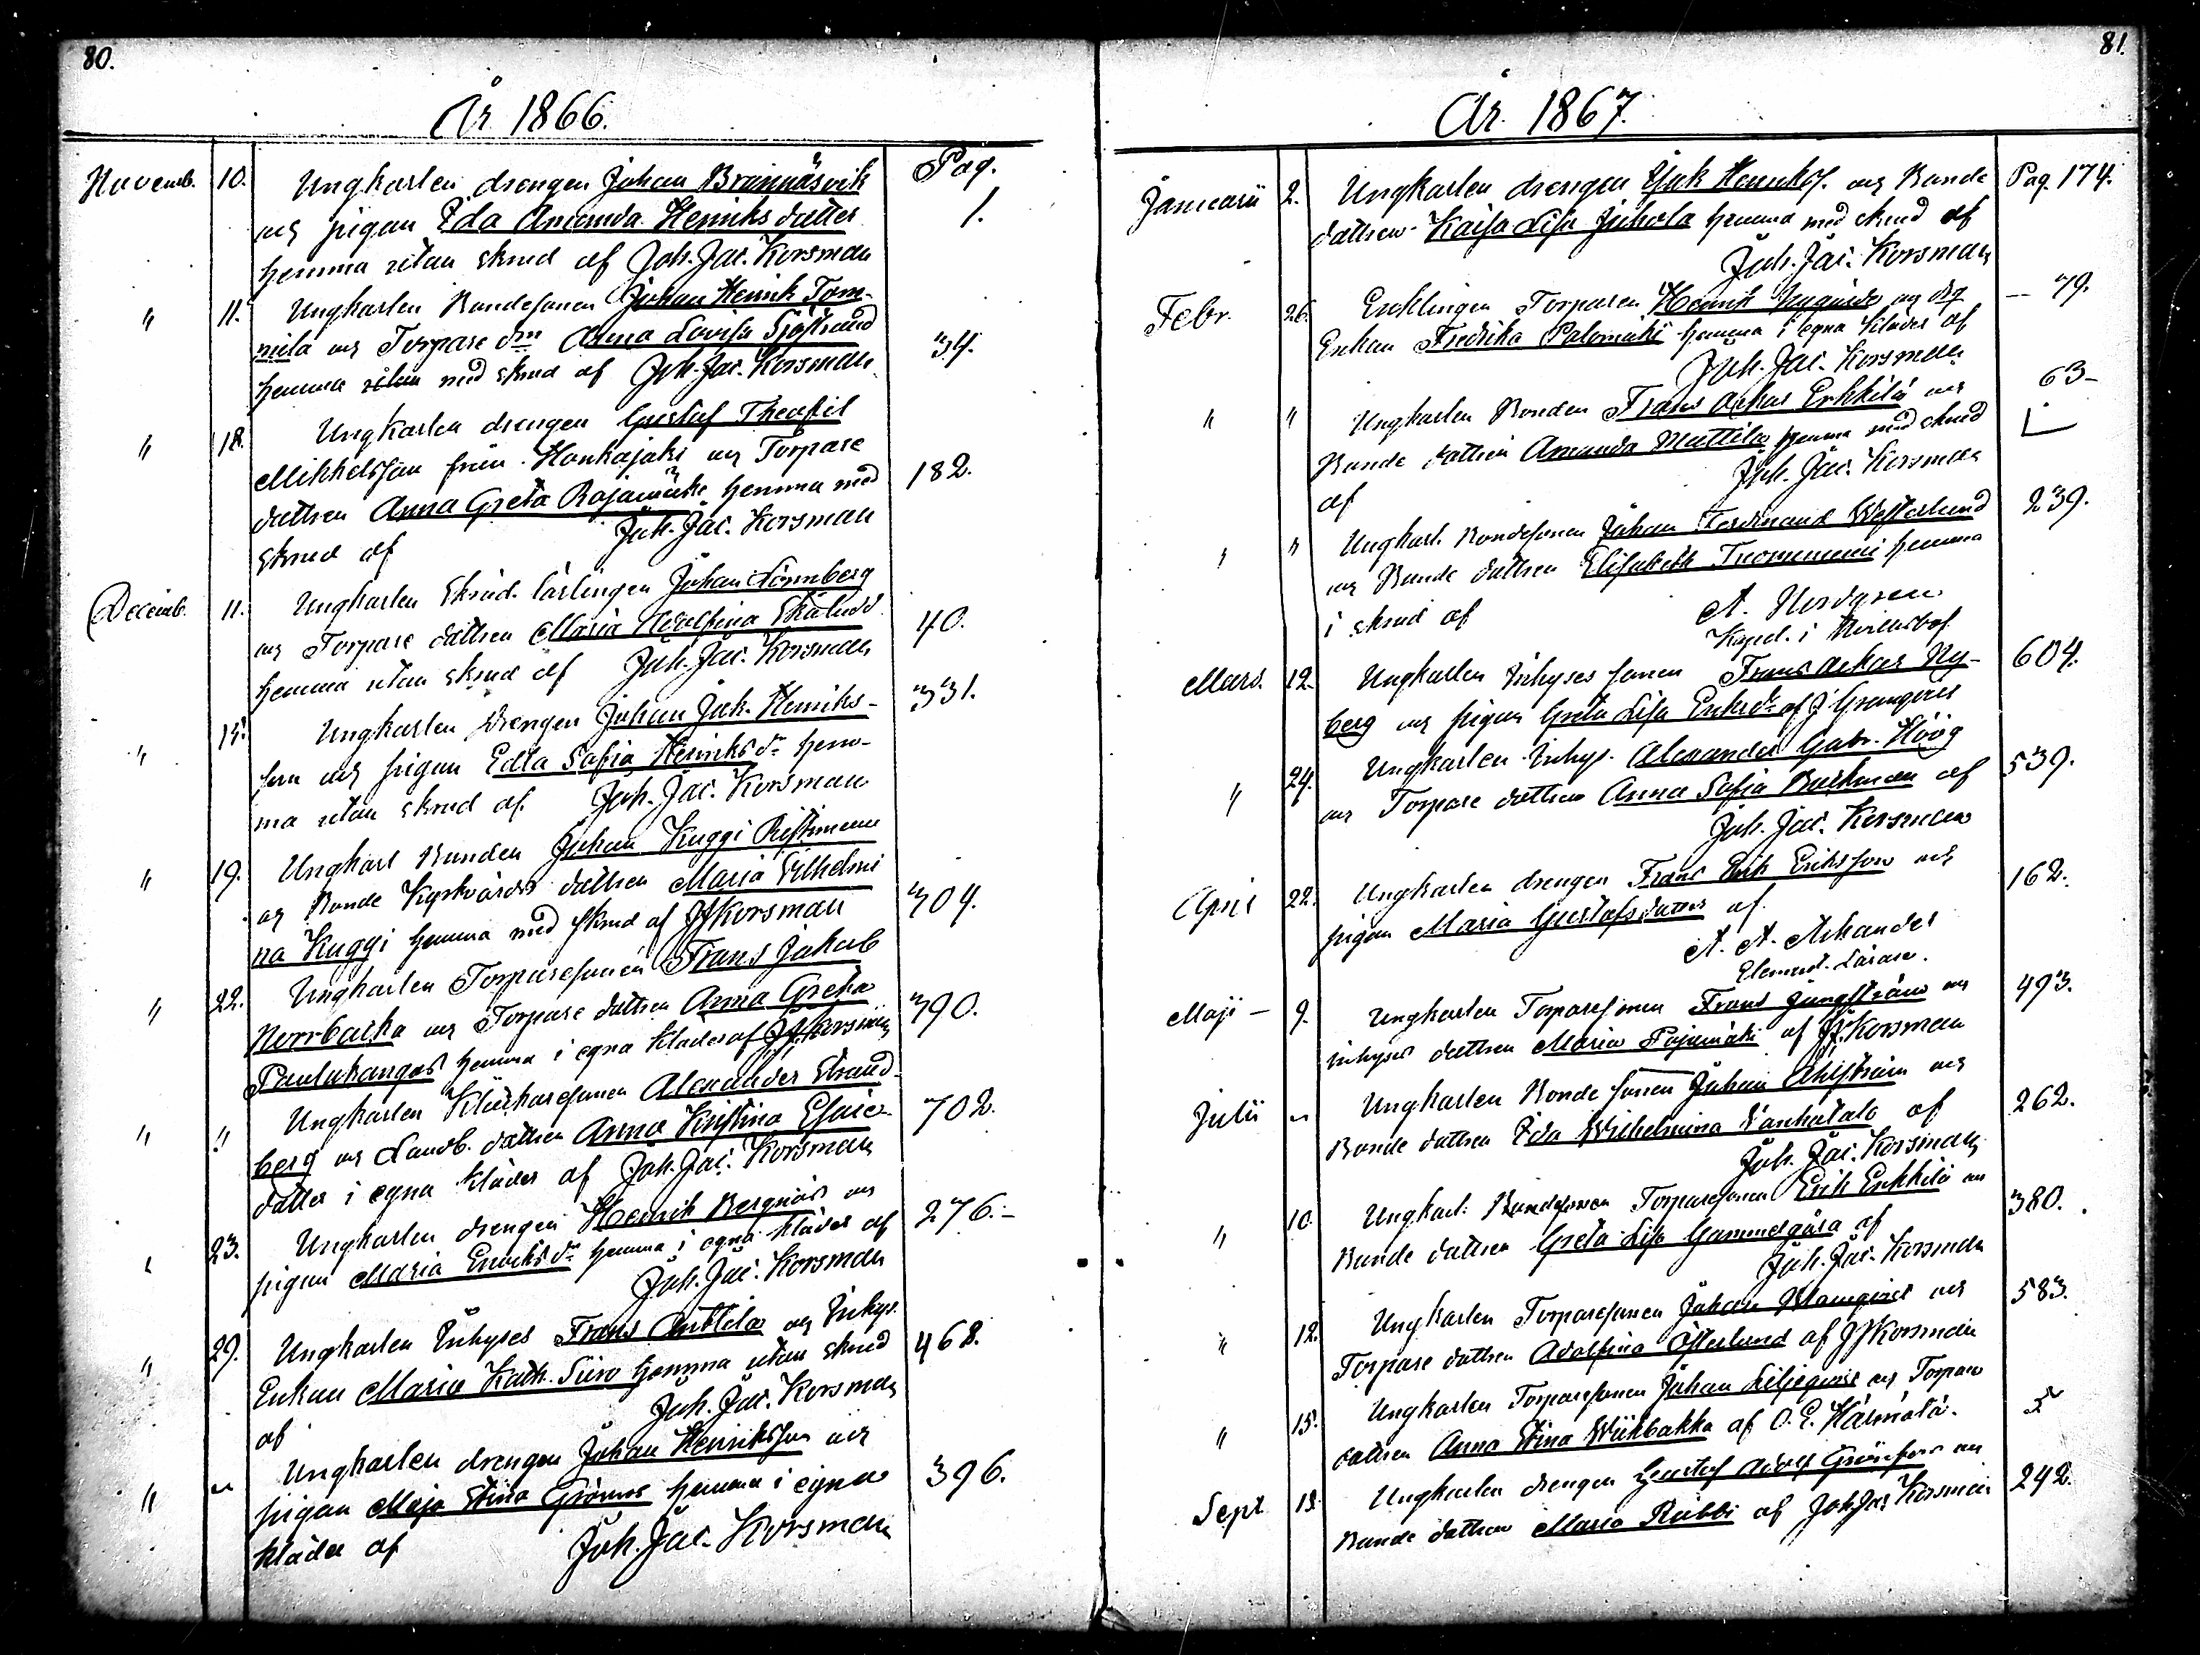 80.
År 1866.
Pag.
Novemb. 10. Ungkarlen drengen Johan Brännäsvik
och pigan Ida Amanda Henriksdotter 1.
hemma utan skrud af Joh. Jac. Korsman
" 11. Ungkarlen Bondesonen Johan Henrik Tom-
mila och Torpare dtrn Anna Lovisa Sjöstrand 34.
hemma utan med skrud af Joh. Jac. Korsman
" 18. Ungkarlen drengen Gustaf Theofil
Mikkelsson från Honkajoki och Torpare
dottren Anna Greta Rajamäki hemma med 182.
skrud af Joh. Jac. Korsman
Decemb. 11. Ungkarlen Skräd. lärlingen Johan Lönnberg
och Torpare dottren Maria Adolfina 40.
hemma utan skrud af Joh. Jac. Korsman
" Ungkarlen drengen Johan Jak. Henriks- 331.
son och pigan Edla Sofia Henriksdr hem-
ma utan skrud af Joh. Jac. Korsman
" 19. Ungkarl Bonden Johan Kuggi
och Bonde Kyrkvärds dottren Maria Vilhelmi
na Kuggi hemma med skrud af JJKorsman 304.
" 22. Ungkarlen Torparesonen Frans Jakob
Norrbacka och Torpare dottren Anna Greta
Paulukangas hemma i egna kläder af JJ. Korsman 390.
" " Ungkarlen Klockaresonen Alexander Strand-
berg och Landb. dottren Anna Kristina Esaie 702.
dotter i egna kläder af Joh. Jac. Korsman
" 23. Ungkarlen drengen Henrik Bergnäs och
pigan Maria Eriksdr hemma i egna kläder af 276.-
Joh. Jac. Korsman
" 29. Ungkarlen Inhyses Frans Anttila och Inhys.
Enkan Maria Kath. Siro hemma utan skrud 468.
af Joh. Jac. Korsman
" " Ungkarlen drengen Johan Henriksson och
pigan Maja Stina Grönroos hemma i egna 396.
kläder af Joh. Jac. Korsman
81.
År 1867.
Januarii 2. Ungkarlen drengen och Bonde Pag. 174.
dottren Kajsa Lisa Juhola hemma med skrud af
Joh. Jac. Korsman
Febr. 26. Enklingen Torparen Henrik och - 79.
Enkan Fredrika Palomäki hemma i egna kläder af
Joh. Jac. Korsman
" " Ungkarlen Bonden Frans Oskar Erkkilä och 63-
Bonde dottren Amanda Mattila hemma med skrud
af Joh. Jac. Korsman
" " Ungkarl. Bondesonen Johan Ferdinand Westerlund 239.
och Bonde dottren Elisabeth Tuorinniemi hemma
i skrud af A. Nordgren
Kapel. i
Mars. 12. Ungkarlen Inhyses sonen Frans Oskar Ny- 604.
berg och pigan Greta Lisa Eriksdr af J Granqvist
" 24. Ungkarlen Inhys. Alexander Gabr. Höög 539.
och Torpare dottren Anna Sofia Backman af
Joh. Jac. Korsman
April 22. Ungkarlen drengen Frans Erik Eriksson och 162.
pigan Maria Gustafsdotter af
A. A. Arkander
Element. Lärare.
Maji - 9. Ungkarlen Torparesonen Frans Ljungström och 493.
Inhyses dottren Maria Pajumäki af JJ.Korsman
Julii " Ungkarlen Bonde sonen Johan Ahlström och
Bonde dottren Ida Wilhelmina Vanhatalo af 262.
Joh. Jac. Korsman
" 10. Ungkarl. Bondesonen Torparesonen Erik Erkkilä och 380.
Bonde dottren Greta Lisa Gammelgård af
Joh. Jac. Korsman
" 12. Ungkarlen Torparesonen Johan Malmqvist och 583.
Torpare dottren Adolfina Österlund af JJKorsman
" 15. Ungkarlen Torparesonen Johan Liljeqvist och Torpare
dottren Anna Stina Wiikbakka af O. E. Härmälä. 5
Sept 18. Ungkarlen drengen Gustaf Adolf Grönfors och 242.
Bonde dottren Maria Riibbi af Joh Jac Korsman